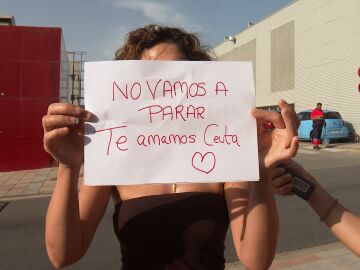 NO VAMOS A
PARAR
Te amamos Ceuta